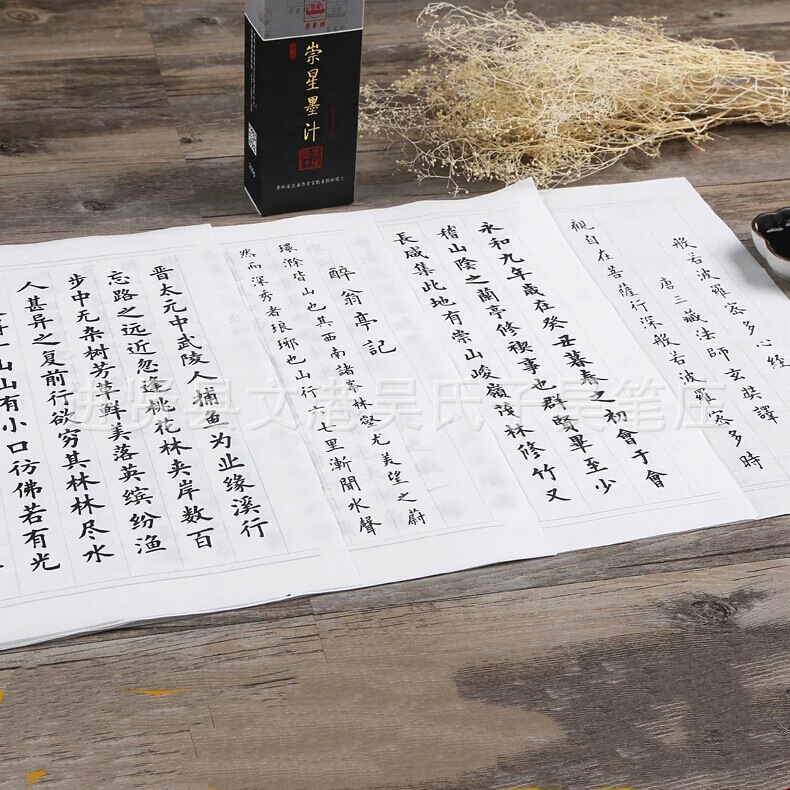 崇星墨汁
般若波羅蜜多心經
唐三藏法師玄奘譯
觀自在菩薩行深般若波羅蜜多時
永和九年歲在癸丑暮春之初會于會
稽山陰之蘭亭修禊事也群賢畢至少
長咸集此地有崇山峻嶺茂林修竹又
醉翁亭記
環滁皆山也其西南諸峯林壑尤美望之蔚
然而深秀者琅琊也山行六七里漸聞水聲
晋太元中武陵人捕鱼为业缘溪行
忘路之远近忽逢桃花林夹岸数百
步中无杂树芳草鲜美落英缤纷渔
人甚异之复前行欲穷其林林尽水
一山山有小口彷佛若有光
进贤县文港吴氏子昊笔庄